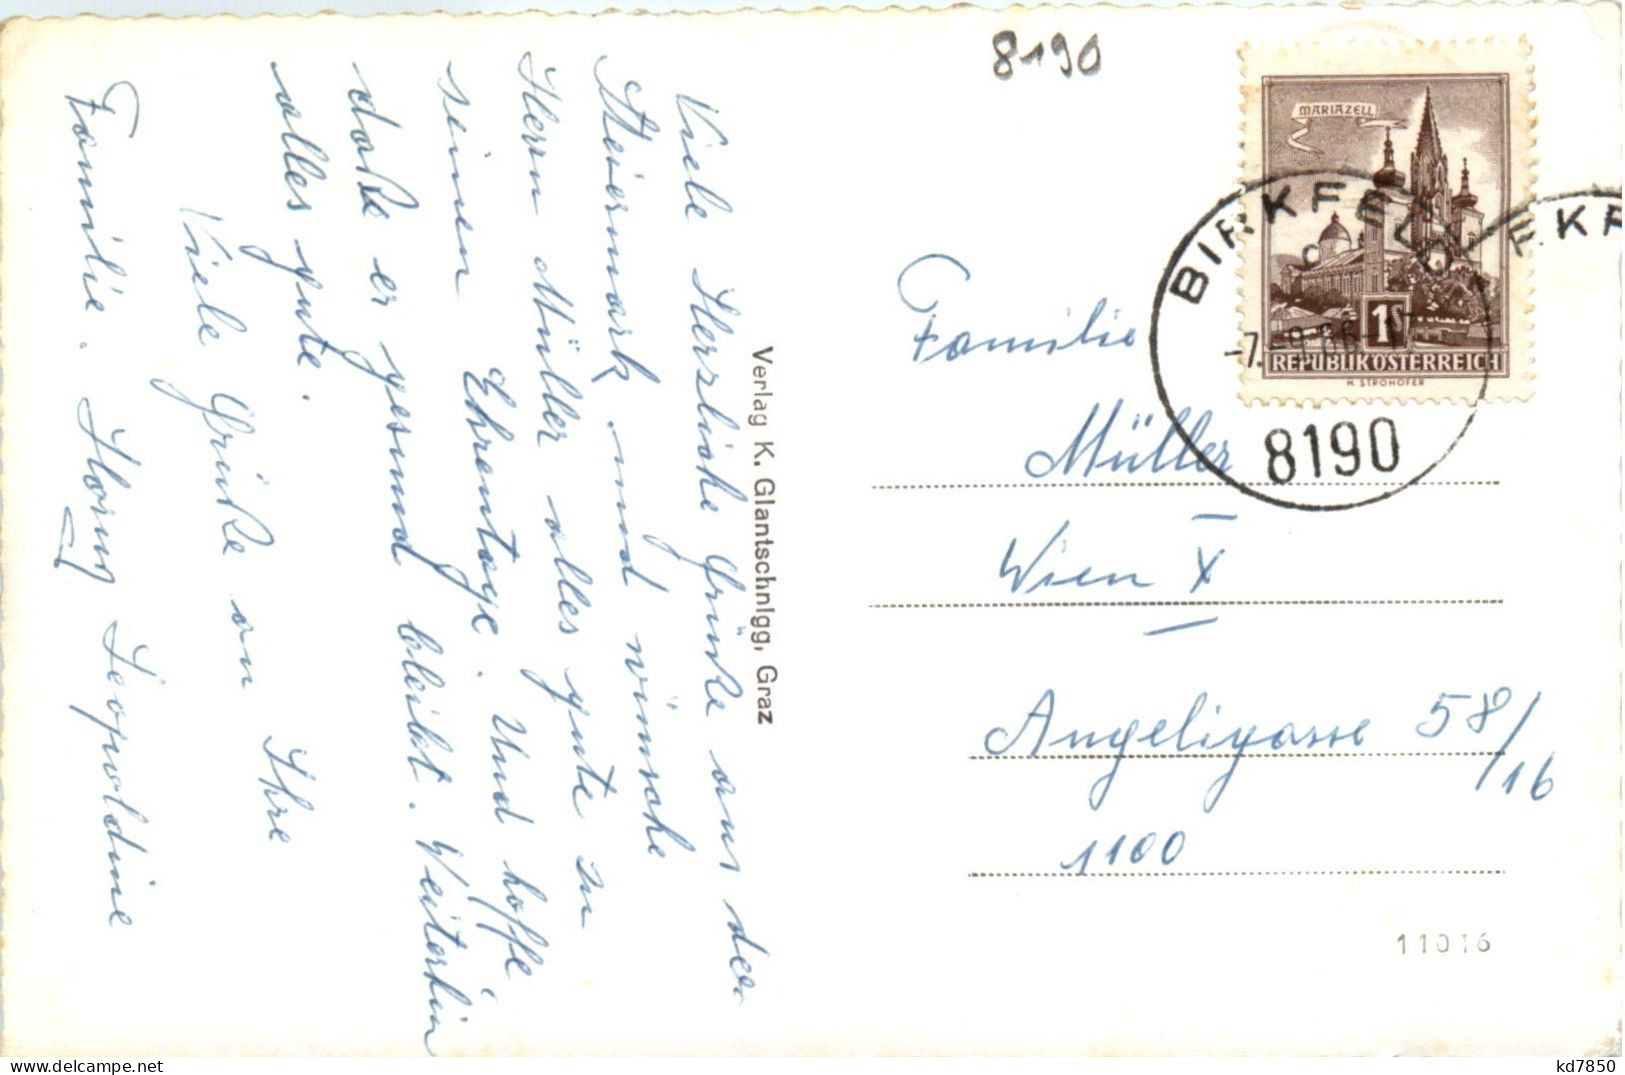 8190
MARIAZELL
BIRKFELD
-7.-9.66-
8190
1S
REPUBLIK ÖSTERREICH
H. STROHOFER
Viele Herzliche Grüße aus der
Steiermark und wünsche
Herrn Müller alles gute zu
seinen Ehrentage. Und hoffe
daße er gesund bleibt. Veiterhin
alles gute.
Viele Grüße an Ihre
Familie. Horny Leopoldine
Verlag K. Glantschnigg, Graz
Familie
Müller
Wien X
Angeligasse 58/
/16
1100
11016
kd7850